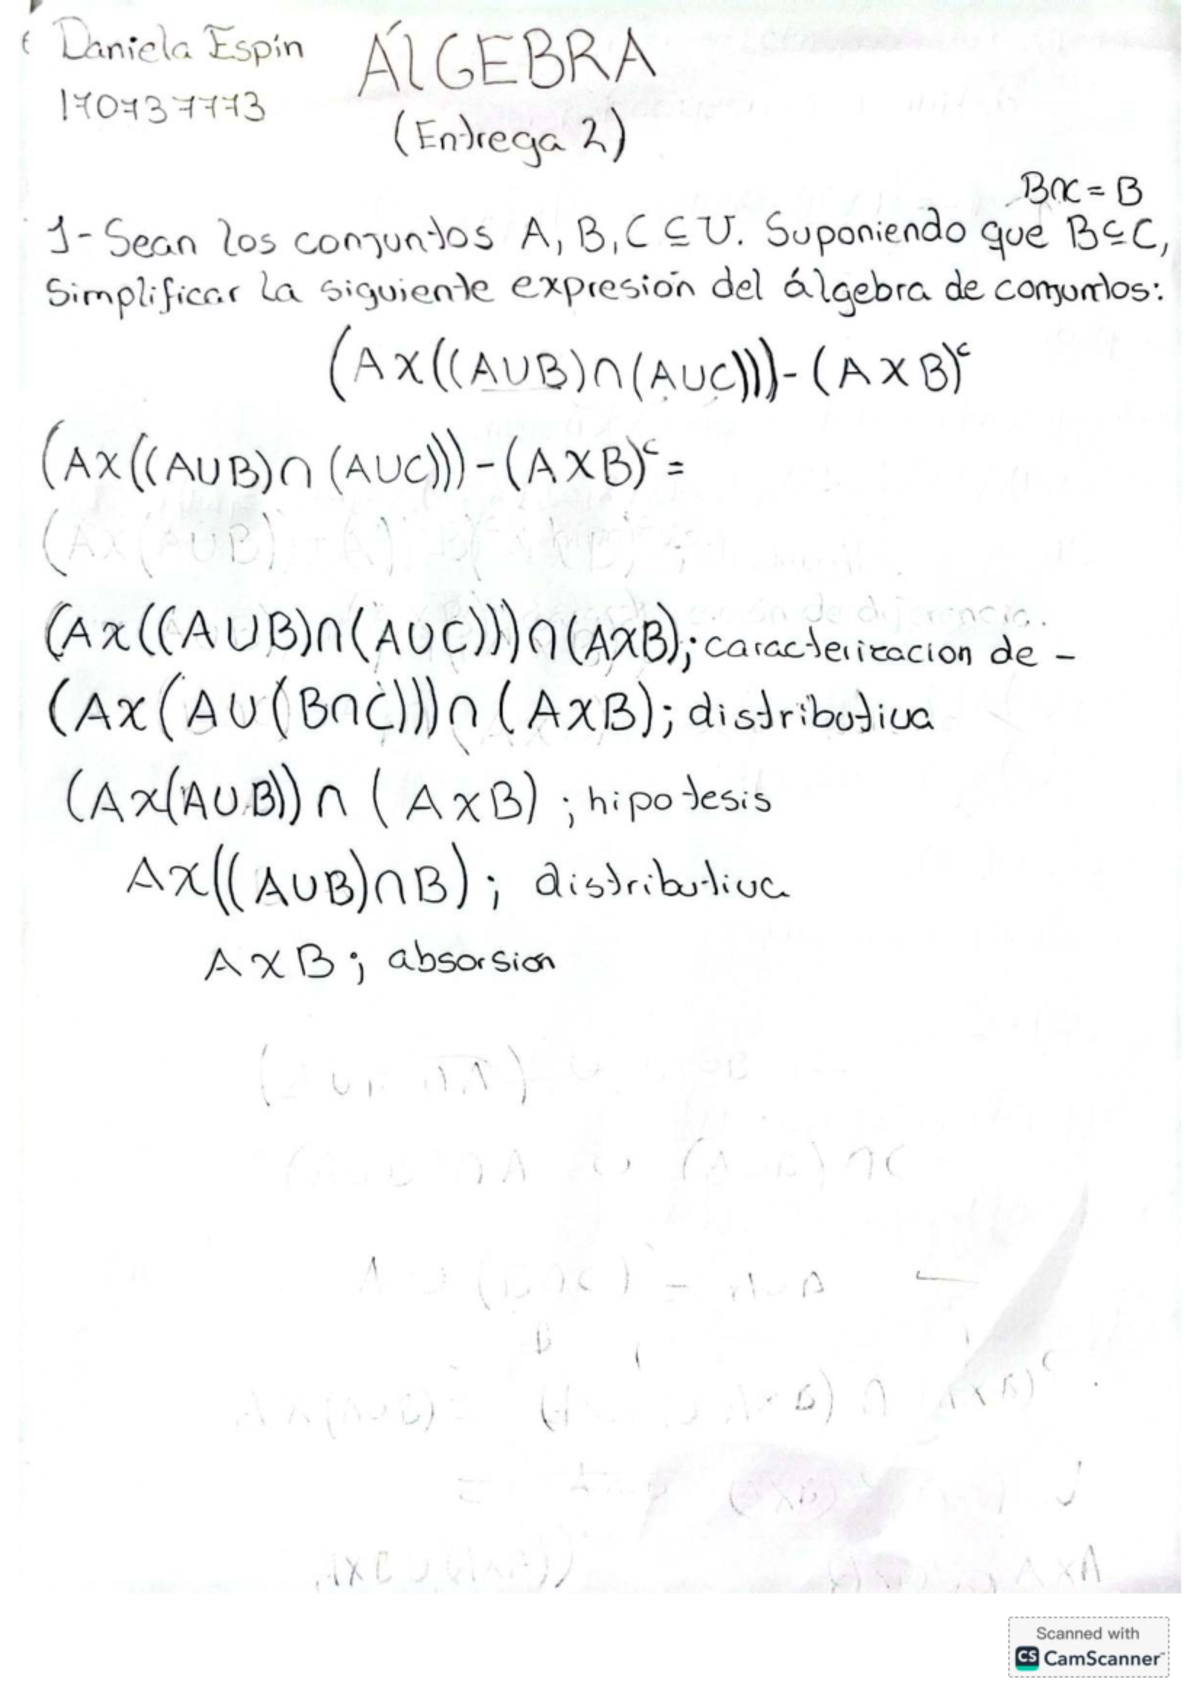 Daniela Espín
170737773
ÁLGEBRA
(Entrega 2)
B∩C = B
1- Sean los conjuntos A, B, C ⊆ U. Suponiendo que B⊆C,
Simplificar la siguiente expresión del álgebra de conjuntos:
(A×((A∪B)∩(A∪C)))-(A×B)ᶜ
(A×((A∪B)∩(A∪C)))-(A×B)ᶜ=
(A×((A∪B)∩(A∪C)))∩(A×B); caracterizacion de -
(A×(A∪(B∩C)))∩(A×B); distributiva
(A×(A∪B))∩(A×B); hipotesis
A×((A∪B)∩B); distributiva
A×B; absorsion
Scanned with
CS CamScanner